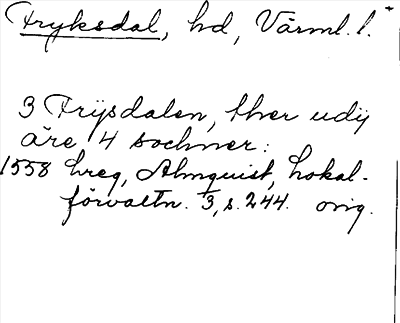 Fryksdal, hd, Värml. l.
3 Frijsdalen, ther udij
äre 4 sochner:
1558 hreg, Almquist, Lokal-
förvaltn. 3, s. 244. orig.